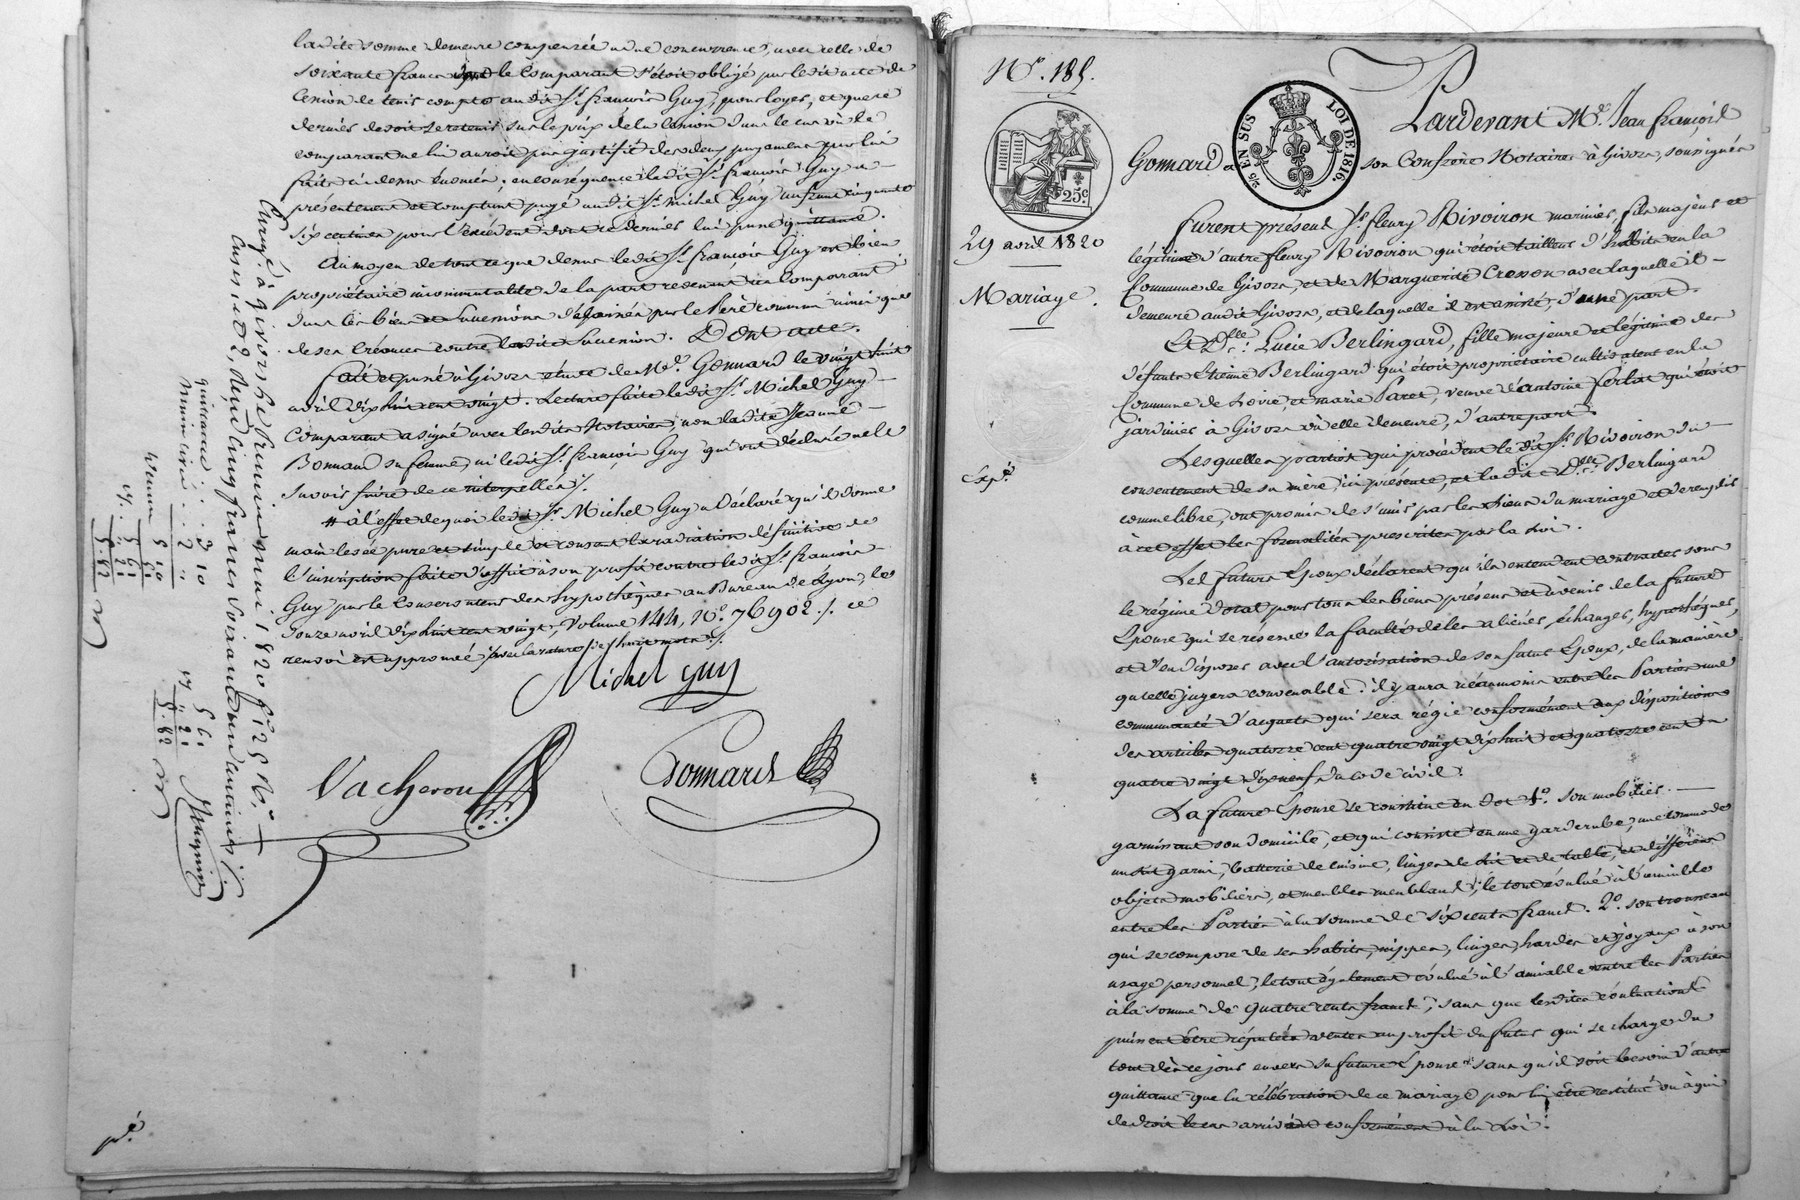 ladite somme demeure compensée à due concurrence, avec celle de
soixante francs dont le Comparant s'étoit obligé par ledit acte de
Cession de tenir compte audit Sr. françois Guy, pour loyer, et que ce
dernier devoit se retenir sur le prix de la Cession dans le cas où le
comparant ne lui auroit pas justifié des deux payemens par lui
faits ci dessus énoncés; en conséquence ledit Sr. françois Guy a
présentement et comptant payé audit Sr. Michel Guy un franc cinquante
six centimes pour l'excédent dont ce dernier lui passe quittance.
Au moyen de tout ce que dessus ledit Sr. françois Guy est bien
propriétaire incommutable de la part revenant au Comparant
dans les biens et Succession délaissés par le Père commun ainsi que
de ses Créances contre ladite Succession. Dont acte.
fait et passé à Givors étude de Me. Gonnard le vingt huit
avril dix huit cent vingt. Lecture faite ledit Sr. Michel Guy
Comparant a signé avec lesdits Notaires, non ladite Jeanne
Bonnand sa femme, ni ledit Sr. françois Guy qui ont déclaré ne le
savoir faire de ce interpellés ./.
# à l'effet de quoi ledit Sr. Michel Guy a déclaré qu'il donne
main levée pure et simple et consent la radiation définitive de
l'inscription faite d'office à son profit contre ledit Sr. françois
Guy par le Conservateur des hypothèques au Bureau de Lyon, le
douze avril dix huit cent vingt, Volume 144, No. 76902 ./. ce
renvoi est approuvé avec la rature de huit mots ./.
Michel Guy
Vacheron
Gonnard
Enregé à Givors le premier mai 1820 fo. 125 Vo.
quittance . . 2 10
Main levée . 2 "
5. 82
pd.
No. 185.
25c
EN SUS
LOI DE 1816.
29 avril 1820
Mariage.
Exp.é
Pardevant Me. Jean françois
Gonnard et son Confrère Notaires à Givors, soussignés
furent présens Sr. fleury Rivoiron marinier, fils majeur et
légitime d'autre fleury Rivoiron qui étoit tailleur d'habits en la
Commune de Givors, et de Marguerite Cresson avec laquelle il
demeure audit Givors, et de laquelle il est assisté, d'une part.
Et Dlle. Lucie Berlingard, fille majeure et légitime des
défunts Etienne Berlingard qui étoit propriétaire cultivateur en la
Commune de Loire, et marie Paret, veuve d'antoine ferlat qui étoit
jardinier à Givors où elle demeure, d'autre part.
Lesquelles parties qui procèdent le dit Sr. Rivoiron du
consentement de sa mère, ici présente, et ladite Dlle. Berlingard
comme libre, ont promis de s'unir par les liens du mariage et de remplir
à cet effet les formalités prescrites par la Loi.
Les futurs Epoux déclarent qu'ils entendent contracter sous
le régime dotal pour tous les biens présens et à venir de la future
Epouse qui se réserve la faculté de les aliéner, échanger, hypothéquer,
et d'en disposer avec l'autorisation de son futur Epoux, de la manière
qu'elle jugera convenable: il y aura néanmoins entre les Parties une
communauté d'acquets qui sera régie conformément aux dispositions
des articles quatorze cent quatre vingt dix huit et quatorze cent
quatre vingt dix neuf du code civil.
La future Epouse se constitue en dot 1o. son mobilier
garnissant son domicile, et qui consiste en une garderobe, une commode
un lit garni, batterie de cuisine, linges de lit et de table, et différens
objets mobiliers, et meubles meublans; le tout évalué à l'amiable
entre les Parties à la somme de six cents francs. 2o. son trousseau
qui se compose de ses habits, nippes, linges, hardes et joyaux à son
usage personnel, le tout également évalué à l'amiable entre les Parties
à la somme de quatre cents francs, sans que lesdites évaluations
puissent être réputées ventes au profit du futur qui se charge du
tout dès ce jour envers sa future Epouse, sans qu'il soit besoin d'autre
quittance que la célébration de ce mariage pour lui être restitué ou à qui
de droit le cas arrivant conformément à la Loi.